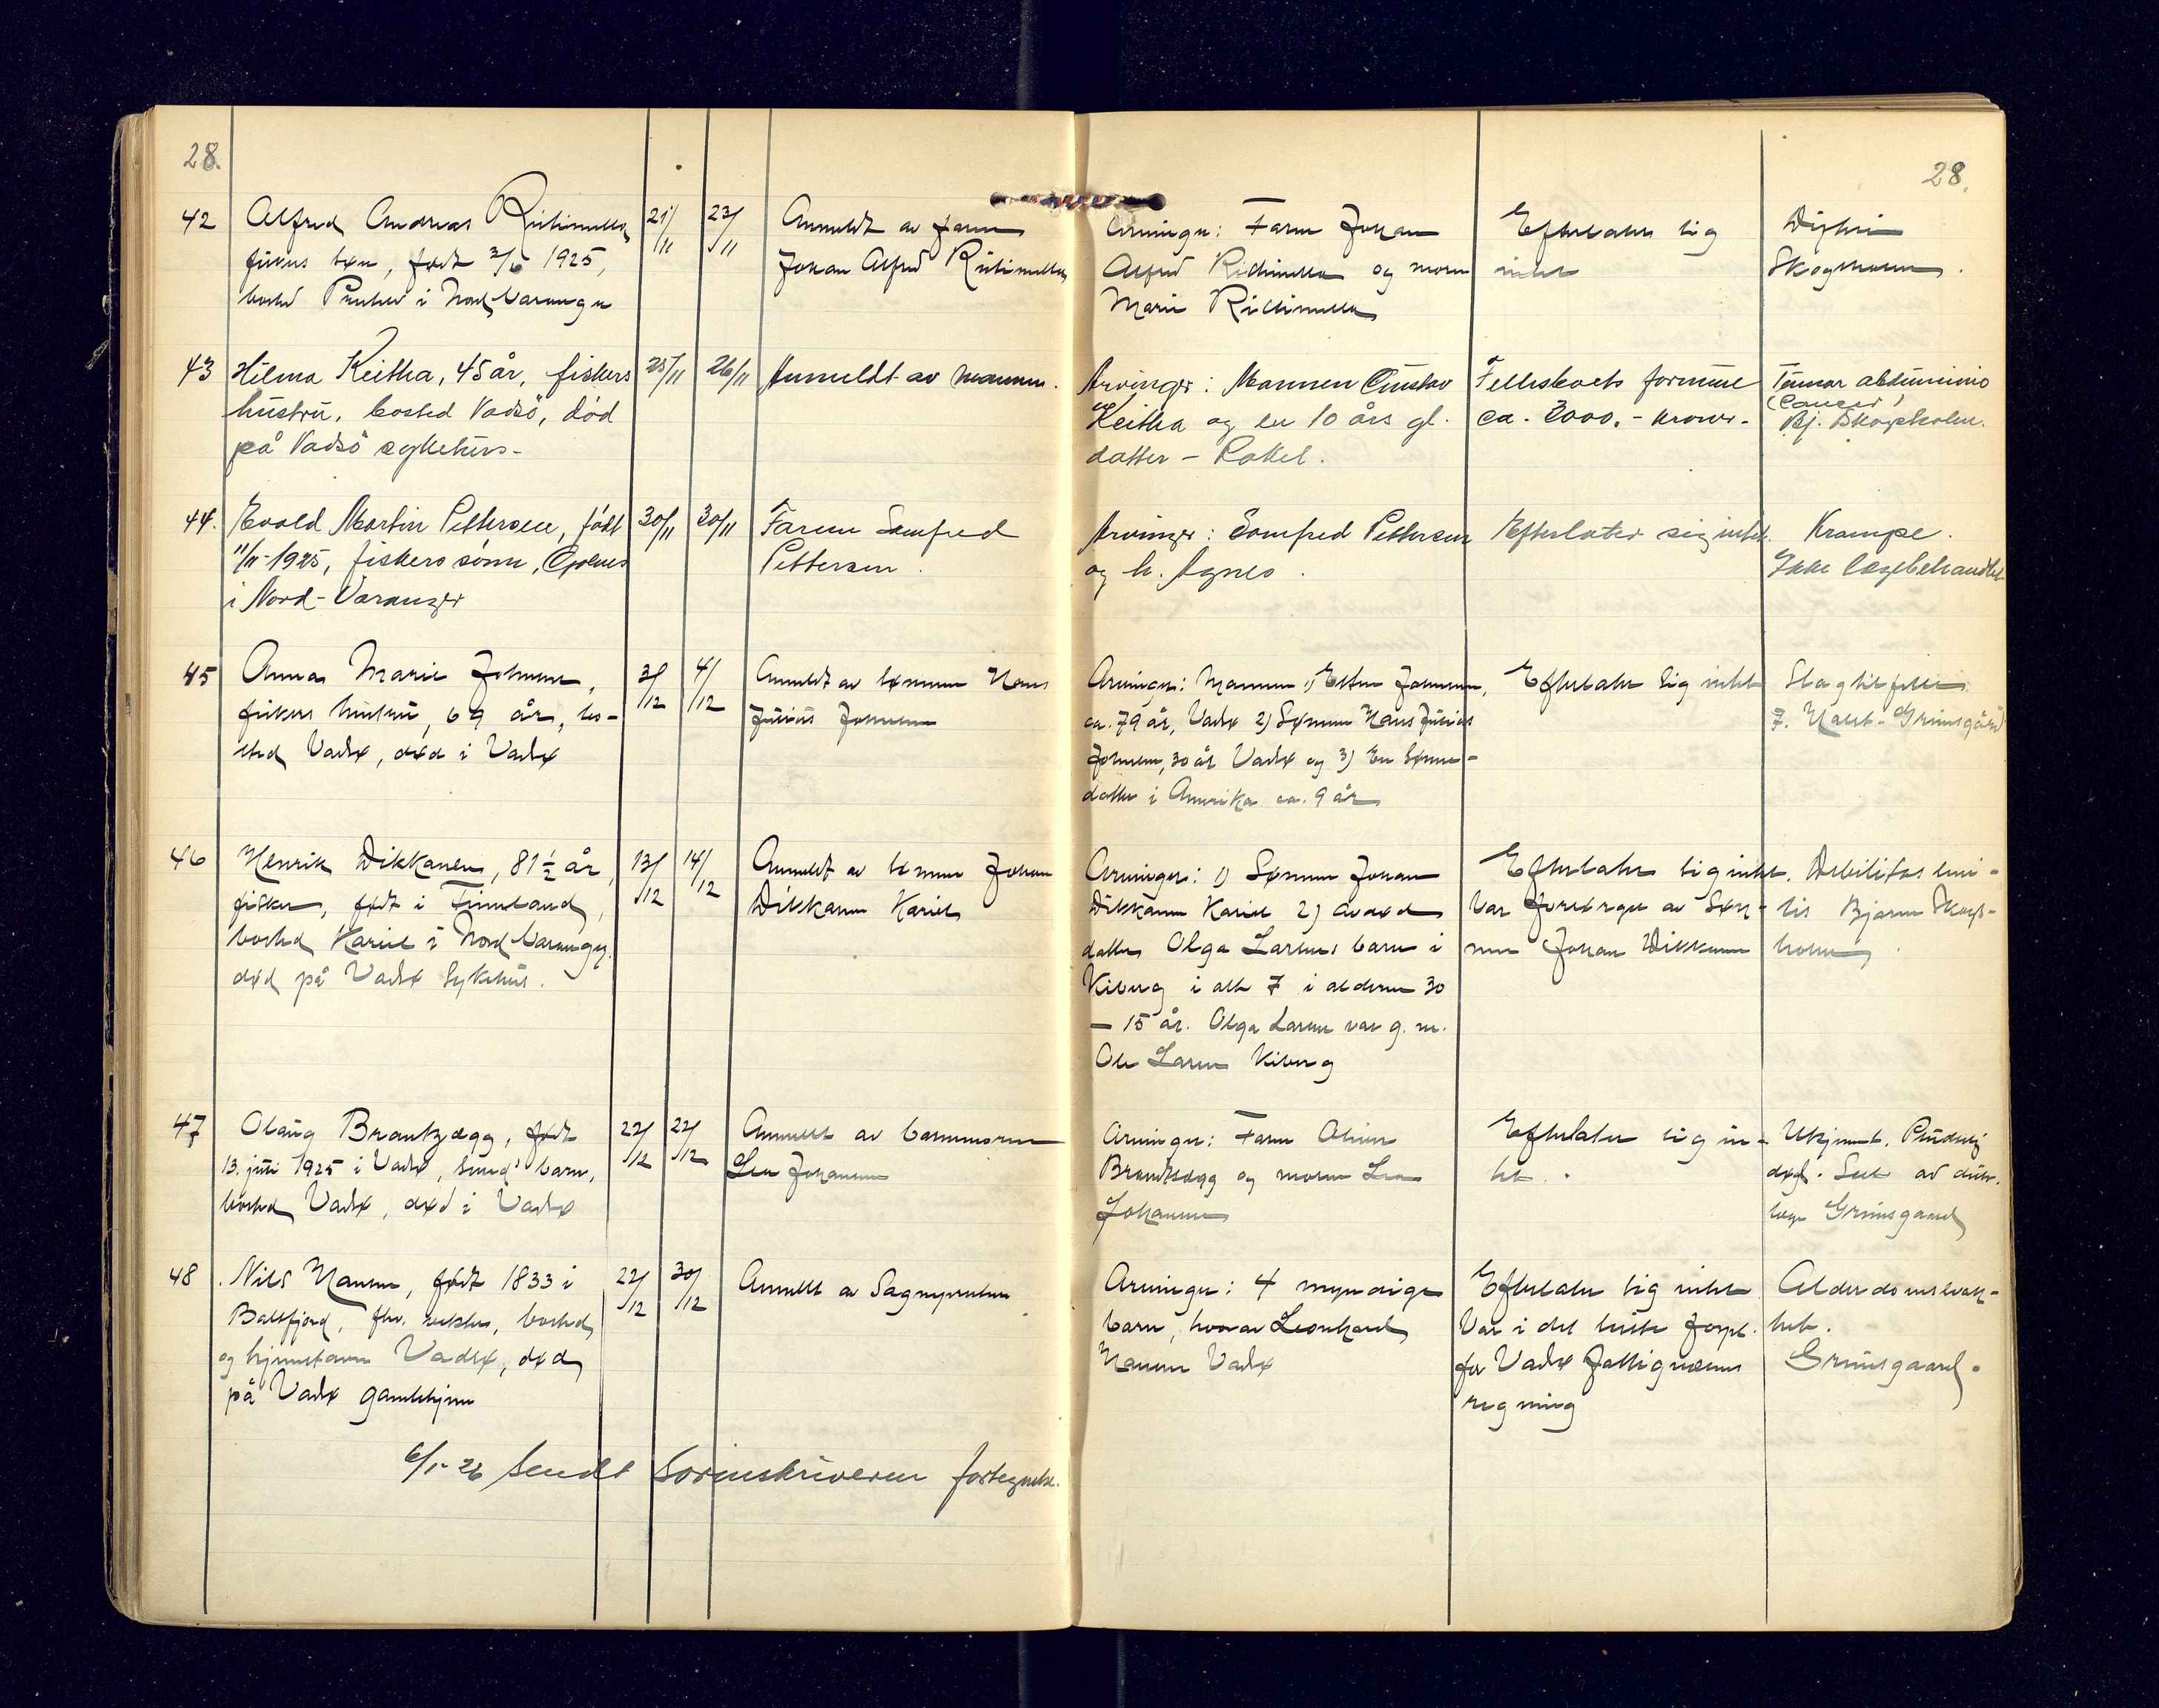 28.
28.
42
Alfred Andreas Ritimella
fiskers søn, født 2/6 1925,
bosted i Nord Varanger
21/11
23/11
Anmeldt av faren
Johan Alfred Ritimella
Arvinger: Faren Johan
Alfred Ritimella og moren
Marie Ritimella
Efterlater sig
intet
Difteri
Skogholm.
43
Hilma Keitha, 45 år, fiskers
hustru, bosted Vadsö, död
på Vadsö sykehus.
25/11
26/11
Anmeldt av mannen.
Arvinger: Mannen Gustav
Keitha og en 10 års gl.
datter - Rakel.
Felleskaets formue
ca. 3000.- kroner.
Tumor abdominis
(Cancer)
Bj. Skogholm.
44.
Evald Martin Pettersen, födt
11/11-1925, fiskers sönn,
i Nord-Varanger
30/11
30/11
Faren Samfred
Pettersen.
Arvinger: Samfred Pettersen
og h. Agnes.
Efterlater sig intet.
Krampe.
Ikke lægebehandlet
45
Anna Marie Johnsen,
fiskers hustru, 69 år, bo-
sted Vadsø, død i Vadsø
3/12
4/12
Anmeldt av sønnen Hans
Julius Johnsen
Arvinger: Mannen 1) Johnsen,
ca. 79 år, Vadsø 2) Sønnen Hans Julius
Johnsen, 30 år Vadsø og 3) En Sønne-
datter i Amerika ca. 9 år
Efterlater sig intet
Slagtilfelle
F. Grimsgård
46
Henrik Dikkanen, 81 1/2 år,
fisker, født i Finnland,
bosted Kariel i Nord Varanger,
død på Vadsø Sykehus.
13/12
14/12
Anmeldt av sønnen Johan
Dikkanen Kariel
Arvinger: 1) Sønnen Johan
Dikkanen Kariel 2) avdød
datter Olga Larsens barn i
Kiberg i alt 7 i alderen 30
- 15 år. Olga Larsen var g. m.
Ole Larsen Kiberg
Efterlater sig intet.
Var forsørget av Søn-
nen Johan Dikkanen
Debilitas seni-
lis Bjarne Skog-
holm.
47
Olaug Brantzægg, født
13. juni 1925 i Vadsø, smeds barn,
bosted Vadsø, død i Vadsø
22/12
22/12
Anmeldt av barnemoren
Lea Johansen
Arvinger: Faren
Brandtzægg og moren Lea
Johansen
Efterlater sig in-
tet.
Ukjent. Pludselig
død. Set av distr.
læge Grimsgaard
48
Nils Hansen, født 1833 i
Balsfjord, fhv. bosted
og hjemstavn Vadsø, død
på Vadsø gamlehjem
22/12
30/12
Anmeldt av Sognepresten
Arvinger: 4 myndige
barn, hvorav Leonhard
Hansen Vadsø
Efterlater sig intet
Var i det siste forpl.
for Vadsø fattigvæsens
regning
Alderdomssvak-
het.
Grimsgaard.
6/1-26 Sendt Sorenskriveren fortegnelse.